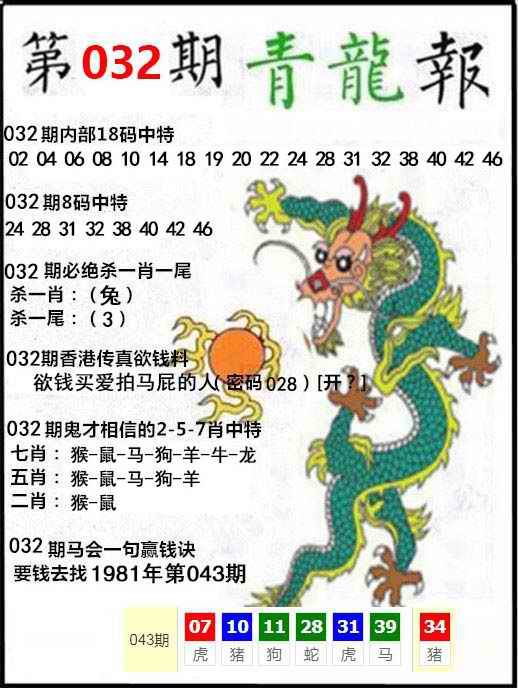 第032期青龍報
032期内部18码中特
02 04 06 08 10 14 18 19 20 22 24 28 31 32 38 40 42 46
032期8码中特
24 28 31 32 38 40 42 46
032期必绝杀一肖一尾
杀一肖：（兔）
杀一尾：（3）
032期香港传真欲钱料
欲钱买爱拍马屁的人（密码028）[开？]
032期鬼才相信的2-5-7肖中特
七肖：猴-鼠-马-狗-羊-牛-龙
五肖：猴-鼠-马-狗-羊
二肖：猴-鼠
032期马会一句赢钱诀
要钱去找1981年第043期
043期 07 10 11 28 31 39 34
虎 猪 狗 蛇 虎 马 猪